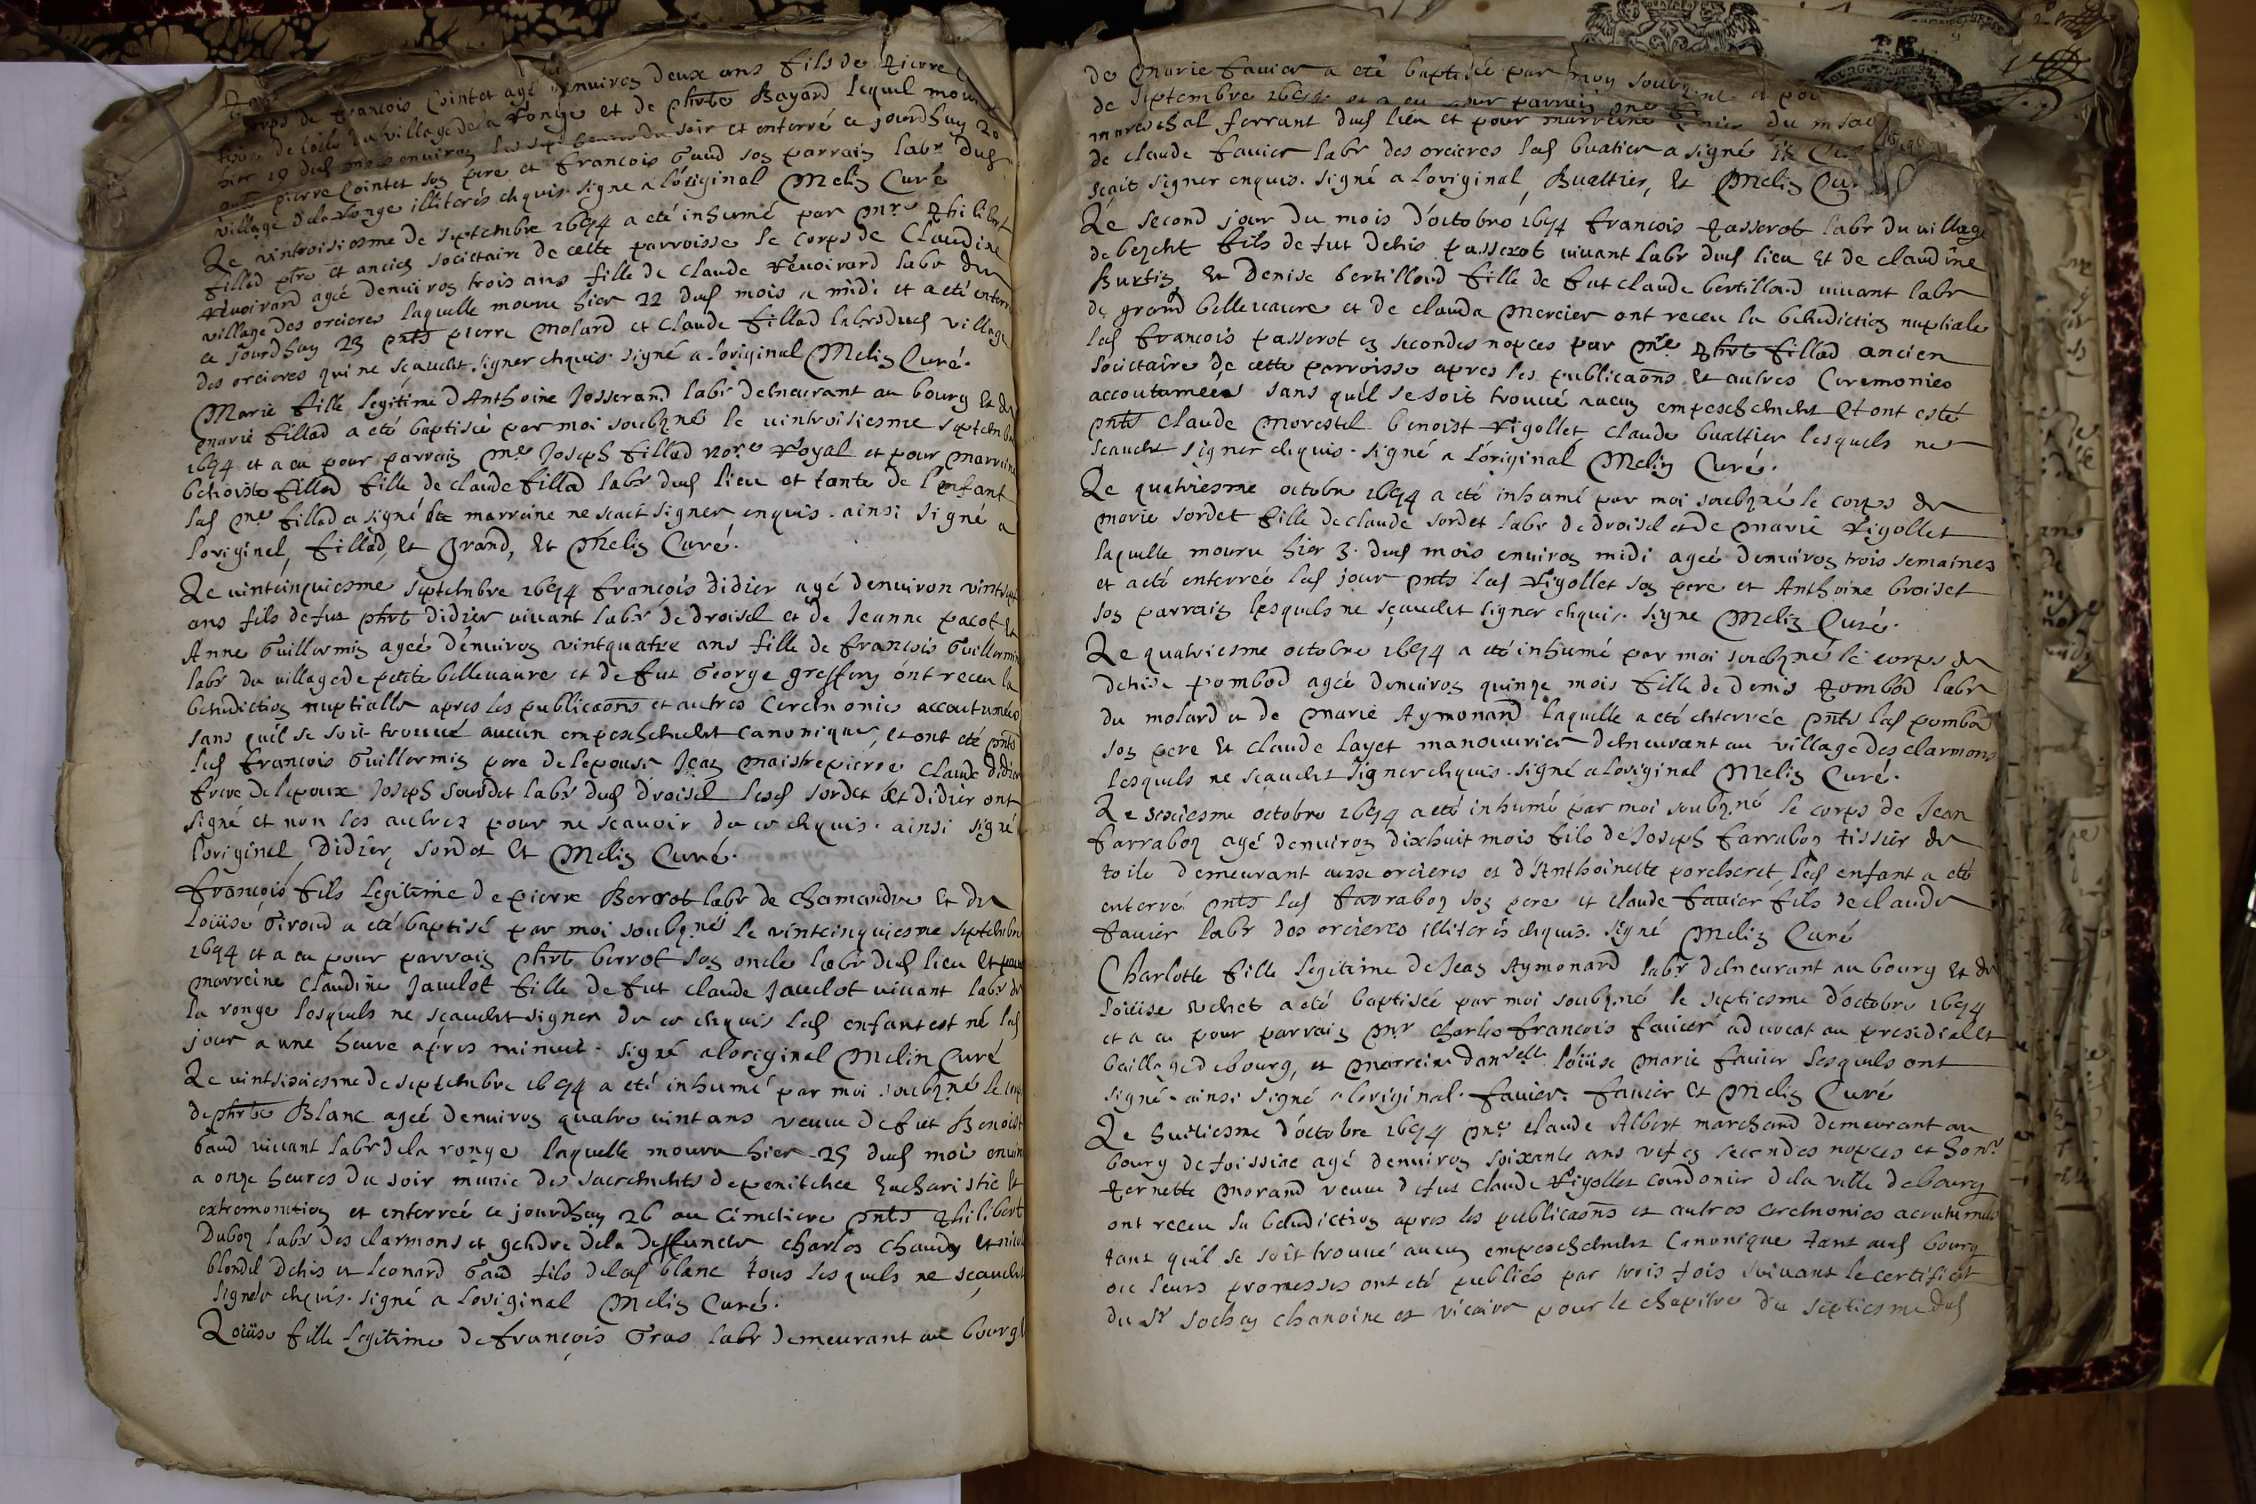 corps de françois Cointet agé denuiron deux ans fils de Pierre
village de la Ronge et de phrte Bayard lequel mour
hier 19 dud mois enuiron les sept heures du soir et enterré ce jourdhuy 20
pierre Cointet son pere et francois Gaud son parrain labr dud
village dela Ronge illiterés enquis. signe a loriginal Melin Curé
Le vintroisiesme de septembre 1694 a eté inhumé par mre Philibert
fillod ptre et ancien societaire de cette parroisse le corps de Claudine
Reuoirard ageé denuiron trois ans fille de claude Reuoirard labr du
village des orcieres laquelle mouru hier 22 dud mois a midi et a eté enterr
ce jourdhuy 23 pnts pierre Molard et Claude fillod labrs dud village
des orcieres qui ne sçauent signer enquis. signé a loriginal Melin Curé.
Marie fille legitime d'Anthoine Josserand labr demeurant au bourg et de
marie fillod a eté baptisée par moi soubzné le vintroisiesme septembre
1694 et a eu pour parrain me Joseph fillod nore Royal et pour marreine
benoiste fillod fille de claude fillod labr dud lieu et tante de l'enfant
led me fillod a signé la marreine ne scait signer enquis. ainsi signé a
l'original, fillod, et Grand, et Melin Curé.
Le vintcinquiesme septembre 1694 françois didier agé denuiron vint
ans fils de fut phrt didier viuant labr de droisel et de Jeanne pacot et
Anne Guillermin ageé denuiron vintquatre ans fille de françois Guillermin
labr du village de petite belleuaure et de fut George greffery ont receu la
benediction nuptialle apres les publicaons et autres Ceremonies accoutumées
sans quil se soit trouué aucun empeschement canonique, et ont eté pnts
led françois Guillermin pere de lepouse Jean maistrepierre Claude didier
frere de lepoux Joseph sourdet labr dud droisel lesd sordet et didier ont
signé et non les autres pour ne scauoir de ce enquis. ainsi signé
loriginal, didier, sordet et Melin Curé.
françois fils legitime de pierre Berrot labr de chamandre et de
Loüise Giroud a eté baptisé par moi soubzné le vintcinquiesme septembre
1694 et a eu pour parrain phrt berrot son oncle labr dud lieu et pour
marreine Claudine Jauelot fille de fut claude Jauelot viuant labr de
la ronge lesquels ne sçauent signer de ce enquis led enfant est né led
jour a une heure apres minuit. signé a loriginal Melin Curé
Le vintsixiesme de septembre 1694 a eté inhumé par moi soubzné le corps
de phrte Blanc ageé denuiron quatre vint ans veuue de fut Benoist
Gaud viuant labr de la ronge laquelle mouru hier 25 dud moi enuiron
a onze heures du soir munie des sacrements de penitence Eucharistie et
extremonction et enterreé ce jourdhuy 26 au Cimetiere pnts Philibert
Dubon labr des clarmons et gendre dela deffuncte charles Chaudy et
blondel denis et leonard Gaud fils delad blanc tous lesquels ne sçauent
signer enquis. signé a loriginal Melin Curé.
Loüise fille legitime de françois Gras labr demeurant au bourg
de Marie fauier a eté baptisée par moy soubzné
de septembre 1694. et a eu pour parrain me
mareschal ferrant dud lieu et pour marreine du
de claude fauier labr des orcieres led Gualtier a signé
scait signer enquis. signé a loriginal, Gualtier, et Melin Cu
Le second jour du mois d'octobre 1694 françois Passerot labr du village
de bezent fils de fut denis passerot viuant labr dud lieu et de claudine
Burtin, et denise bertilloud fille de fut claude bertilloud viuant labr
de grand belleuaure et de clauda Mercier ont receu la benediction nuptiale
led françois passerot en secondes nopces par mre phrt fillod ancien
societaire de cette parroisse apres les publicaons et autres Ceremonies
accoutumees sans quil se soit trouué aucun empeschement et ont esté
pnts Claude Morestel benoist Rigollet claude Gualtier lesquels ne
scauent signer enquis. signé a l'original Melin Curé.
Le quatriesme octobre 1694 a eté inhumé par moi soubzné le corps de
Marie sordet fille de claude sordet labr de droisel et de Marie Rigollet
laquelle mouru hier 3. dud mois enuiron midi ageé denuiron trois semaines
et a eté enterreé led jour pnts led Rigollet son pere et Anthoine broiset
son parrain lesquels ne sçauent signer enquis. signe Melin Curé.
Le quatriesme octobre 1694 a eté inhumé par moi soubzné le corps de
denise pombod ageé denuiron quinze mois fille de denis Pombod labr
du molard et de Marie Aymonard laquelle a eté enterreé pnts led pombod
son pere et Claude layet manouurier demeurant au village des clarmons
lesquels ne scauent signer enquis. signé a loriginal Melin Curé.
Le sexiesme octobre 1694 a eté inhumé par moi soubzné le corps de Jean
farrabon agé denuiron dixhuit mois fils de Joseph farrabon tissier de
toile demeurant aux orcieres et d'Anthoinette porcheret, led enfant a eté
enterré pnts led farrabon son pere et claude fauier fils de claude
fauier labr des orcieres illiterés enquis. signé Melin Curé
Charlotte fille legitime de Jean Aymonard labr demeurant au bourg et de
loüise uchet a eté baptiseé par moi soubzné le septiesme d'octobre 1694
et a eu pour parrain mr charles françois fauier aduocat au presidial et
baillage de bourg, et marreine damelle loüise marie fauier lesquels ont
signé. ainsi signé a loriginal. fauier. fauier et Melin Curé
Le huitiesme d'octobre 1694 me claude Albert marchand demeurant au
bourg de foissiac agé denuiron soixante ans vef en secondes nopces et honr
Pernette Morand veuue de fut Claude Rigollet Cordonier dela ville de bourg
ont receu la benediction apres les publicaons et autres ceremonies acoutumées
sans quil se soit trouué aucun empeschement Canonique tant aud bourg
ou leurs promesses ont eté publiés par trois fois suivant le certificat
du sr sochay chanoine et vicaire pour le chapitre du septiesme dud